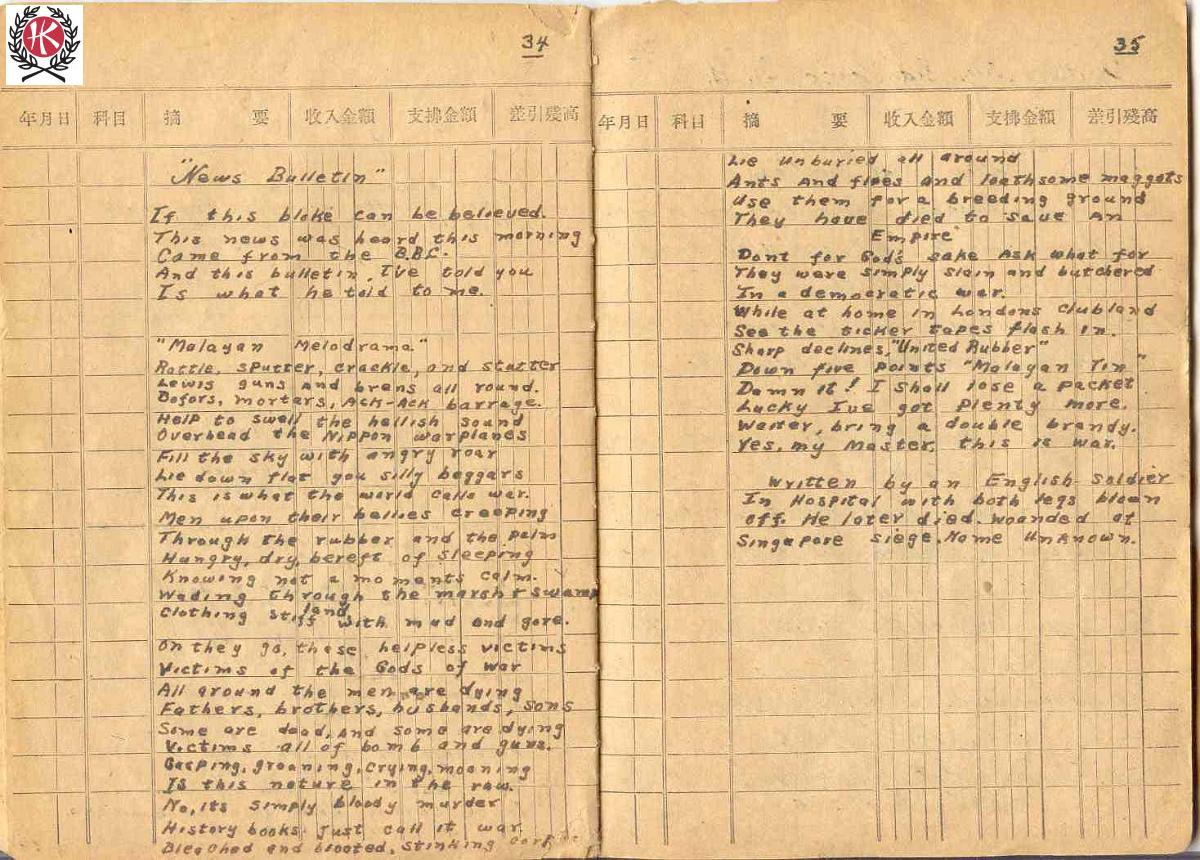 HK
34
年月日 科目 摘要 收入金額 支拂金額 差引残高
"News Bulletin"
If this bloke can be believed.
This news was heard this morning
Came from the B.B.C.
And this bulletin, I've told you
Is what he told to me.
"Malayan Melodrama"
Rattle, sputter, crackle, and stutter
Lewis guns and brens all round.
Bofors, mortars, Ack-Ack barrage.
Help to swell the hellish sound
Overhead the Nippon warplanes
Fill the sky with angry roar
Lie down flat you silly beggars
This is what the world calls war.
Men upon their bellies creeping
Through the rubber and the palm
Hungry, dry, bereft of sleeping
Knowing not a moments calm.
Wading through the marsh & swamp
land
Clothing stiff with mud and gore.
On they go, these helpless victims
Victims of the Gods of war
All around the men are dying
Fathers, brothers, husbands, sons
Some are dead, and some are dying
Victims all of bomb and guns.
Gasping, groaning, crying, moaning
Is this nature in the raw.
No, its simply bloody murder
History books just call it war.
Bleached and bloated, stinking
35
年月日 科目 摘要 收入金額 支拂金額 差引残高
Lie unburied all around
Ants and flies and loathsome maggots
Use them for a breeding ground
They have died to save an
Empire
Dont for God's sake ask what for
They were simply slain and butchered
In a democratic war.
While at home in Londons clubland
See the ticker tapes flash in.
Sharp declines, "United Rubber"
Down five points "Malayan Tin"
Damn it! I shall lose a packet
Lucky I've got plenty more.
Waiter, bring a double brandy.
Yes, my Master, this is war.
Written by an English soldier
In Hospital with both legs blown
off. He later died. Wounded at
Singapore siege. Name unknown.